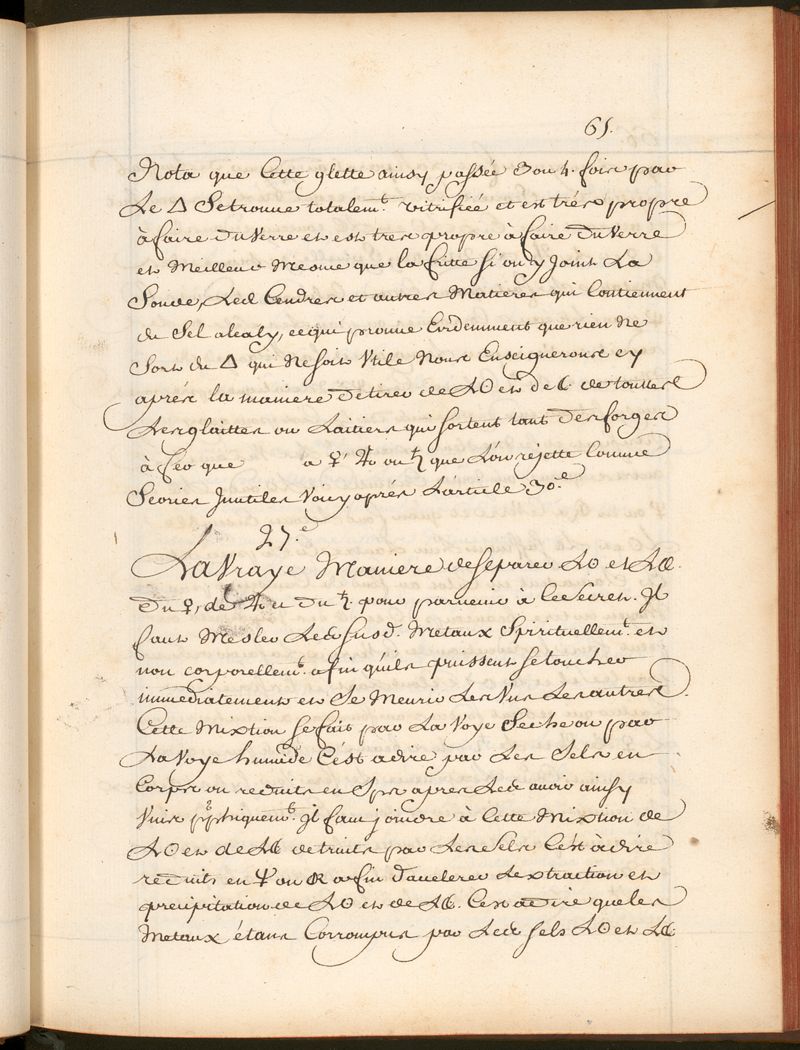 65.
Nota que Cette glette ainsy passée 3 ou 4. fois par
Le △ Se trouve totalemt. vitrifiée et est trés propre
à faire Du Verre et est tres propre à faire Du Verre
et Meilleur Mesme que la fritte si on y Joint La
Soude, Lesd Cendres et autres Matieres qui Contiennent
du Sel alcaly, ce qui prouve Evidemment que rien ne
Sort du △ qui Ne soit Vtile Nous Enseignerons cy
aprés la maniere De tirer de L☉ et de ☾. de touttes
Les glaittes ou Laitiers qui sortent tant Des forges
à fer que à ♀ ♃ ou ♄ que L'on réjette Comme
Scories Jnutiles Voiy aprés L'article 30.e
27.e
La Vraye Maniere de separer L☉ et L☾.
Du ♀, de ♃ et Du ♄. pour parvenir à Ce secret. Jl
faut Mesler Lesd susd. Metaux Spirituellemt. et
non corporellemt. afin qu'ils puissent se toucher
immédiatement et Se Meurir Les Vns Les autres.
Cette Mixtion se fait par La Voye Seche ou par
La Voye humide C'est a dire par Les Sels en
Corps ou reduits en Sps apres Lesd avoir ainsy
Vnis phisiquemt. Jl faut joindre à Cette Mixtion de
L☉ et de L☾ detruits par Les sels C'est à dire
réduits en ou afin D'accelerer L'extraction et
précipitation de L☉ et de L☾. C'est a dire que les
Metaux étans Corrompus par Lesd sels L☉ et L☾